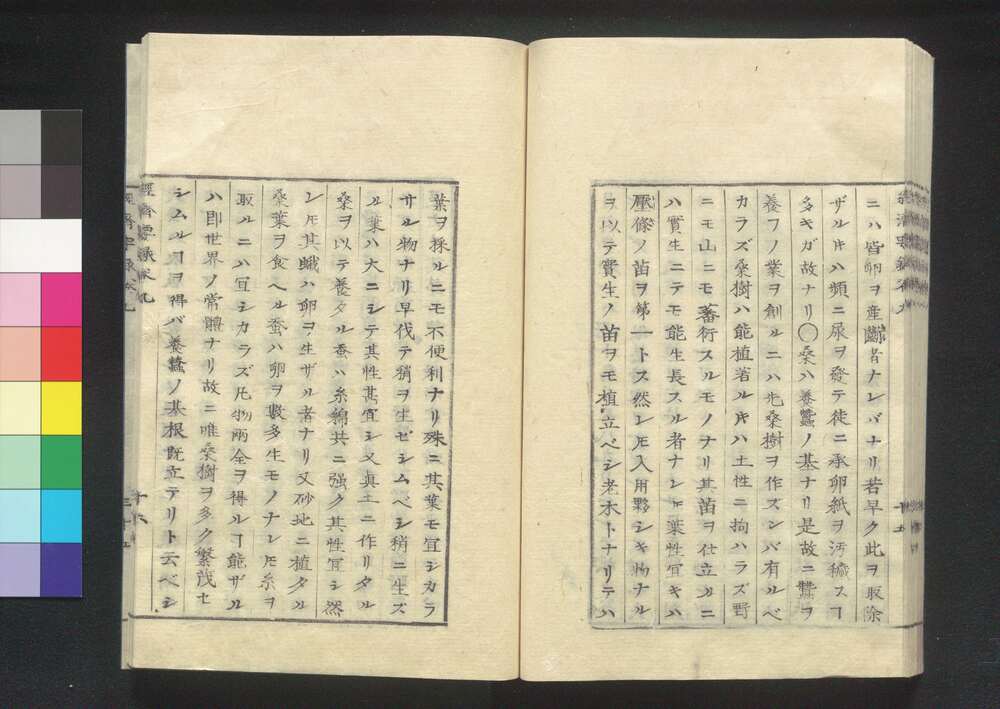 ニハ皆卵ヲ産斷者ナレバナリ若早ク此ヲ取除
ザル𪜈ハ頻ニ尿ヲ發テ徒ニ承卵紙ヲ汚穢スヿ
多キガ故ナリ〇桑ハ養蠶ノ基ナリ是故ニ蠶ヲ
養フノ業ヲ創ルニハ先桑樹ヲ作ズンバ有ルベ
カラズ桑樹ハ能植著ル𪜈ハ土性ニ拘ハラズ野
ニモ山ニモ蕃衍スルモノナリ其苗ヲ仕立ルニ
ハ實生ニテモ能生長スル者ナレ𪜈葉性宜キハ
壓條ノ苗ヲ第一トス然レ𪜈入用夥シキ物ナル
ヲ以テ實生ノ苗ヲモ植立ベシ老木トナリテハ
葉ヲ採ルニモ不便利ナリ殊ニ其葉モ宜シカラ
サル物ナリ早伐テ稍ヲ生ゼシムベシ稍ニ生ズ
ル葉ハ大ニシテ其性甚宜シ又眞土ニ作リタル
桑ヲ以テ養タル蚕ハ糸綿共ニ强ク其性宜シ然
レ𪜈其蛾ハ卵ヲ生ザル者ナリ又砂地ニ植タル
桑葉ヲ食ヘル蚕ハ卵ヲ數多生モノナレ𪜈糸ヲ
取ルニハ宜シカラズ凡物兩全ヲ得ルヿ能ザル
ハ即世界ノ常體ナリ故ニ唯桑樹ヲ多ク繁茂セ
シムルヿヲ得バ養蠶ノ基根既立テリト云ベシ
十六